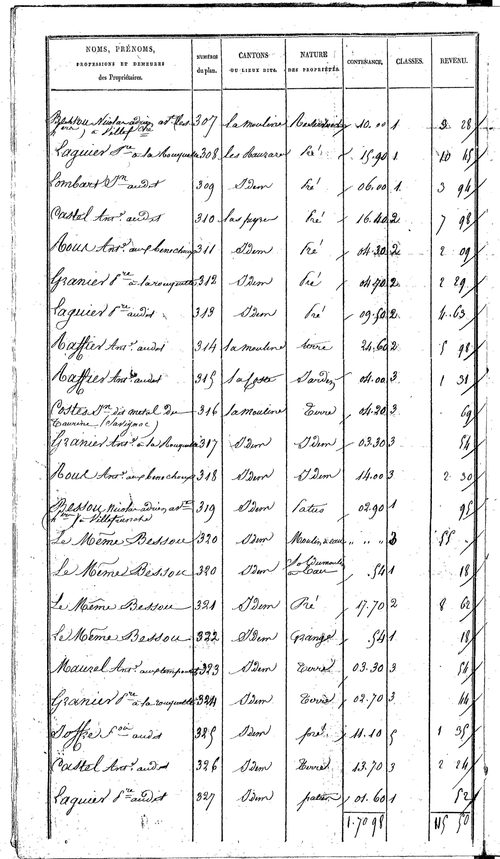 NOMS, PRÉNOMS, PROFESSIONS ET DEMEURES des Propriétaires. NUMÉROS du plan. CANTONS OU LIEUX DITS. NATURE DES PROPRIÉTÉS. CONTENANCE. CLASSES. REVENU.
Bessou Nicolas adrien 307 Lamouline 10.00 1 9 28
à Villef^che
Laguier P^re à la Rouquette 308 Pré 15.90 1 10 45
Lombart audit 309 Idem Pré 06.00 1 3 94
Castel Ant^e audit 310 Laspeyre Pré 16.40 2 7 98
Roux Ant^e 311 Idem Pré 04.30 2 2 09
Granier P^re à larouquette 312 Idem Pré 04.70 2 2 29
Laguier P^re audit 313 Idem Pré 09.50 2 4 63
Raffier Ant^e audit 314 Lamouline terre 24.60 2 5 98
Raffier Ant^e audit 315 La Coste Jardin 04.00 3 1 31
Costes 316 Lamouline Terre 04.20 3 69
(Savignac)
Granier Ant^e à la Rouquette 317 Idem Idem 03.30 3 54
Roux Ant^e 318 Idem Idem 14.00 3 2 30
Bessou Nicolas adrien 319 Idem Patus 02.90 1 95
à Villefranche
Le Même Bessou 320 Idem Moulin à eau " " " 3 55 .
Le Même Bessou 320 Idem Sol du moulin à Eau 54 1 18
Le Même Bessou 321 Idem Pré 17.70 2 8 62
Le Même Bessou 322 Idem Grange 54 1 18
Maurel Ant^e 323 Idem Terre 03.30 3 54
Granier P^re à la rouquette 324 Idem Terre 02.70 3 44
Joffre audit 325 Idem 11.10 5 1 35
Castel Ant^e audit 326 Idem Terre 13.70 3 2 24
Laguier P^re audit 327 Idem patus 01.60 1 52
1.70 98 115 50